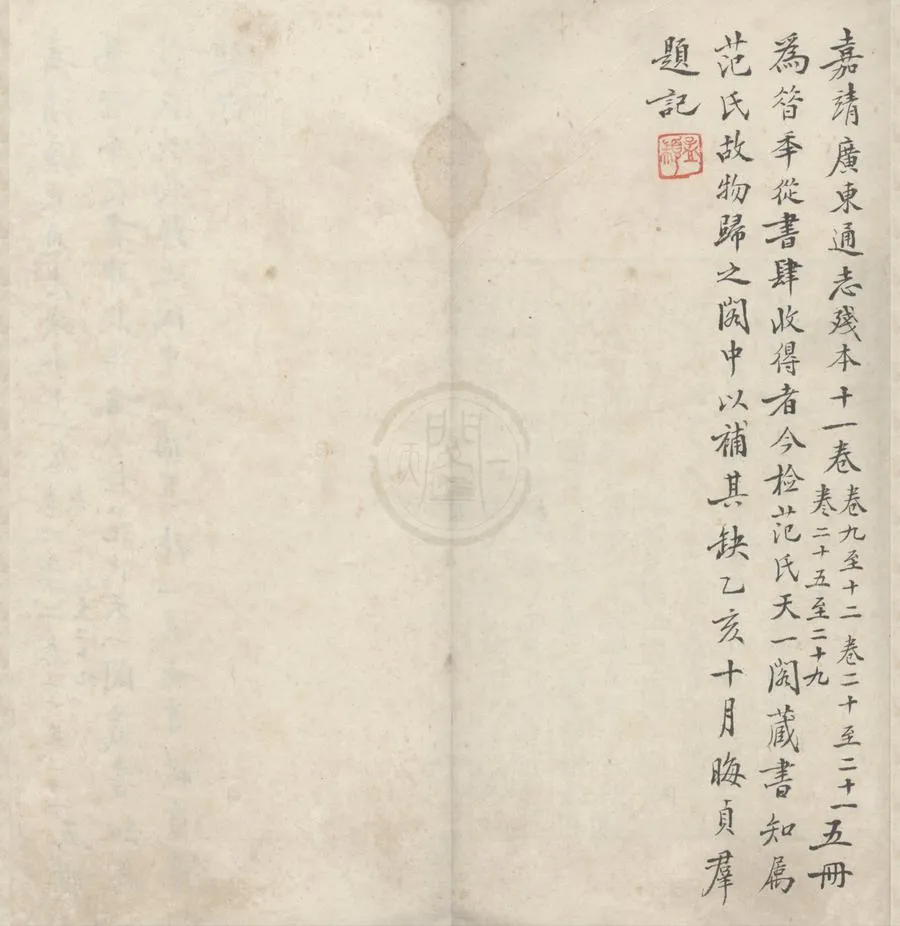 嘉靖廣東通志殘本十一卷卷九至十二卷二十至二十一卷二十五至二十九五冊
為昝年從書肆收得者今檢范氏天一閣藏書知属
范氏故物歸之閣中以補其缺乙亥十月晦貞羣
題記
孟顒
天一閣